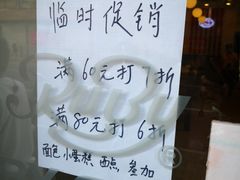 临时促销
满60元打7折
满80元打6折
面包 小蛋糕 西点 参加
Ruby
®